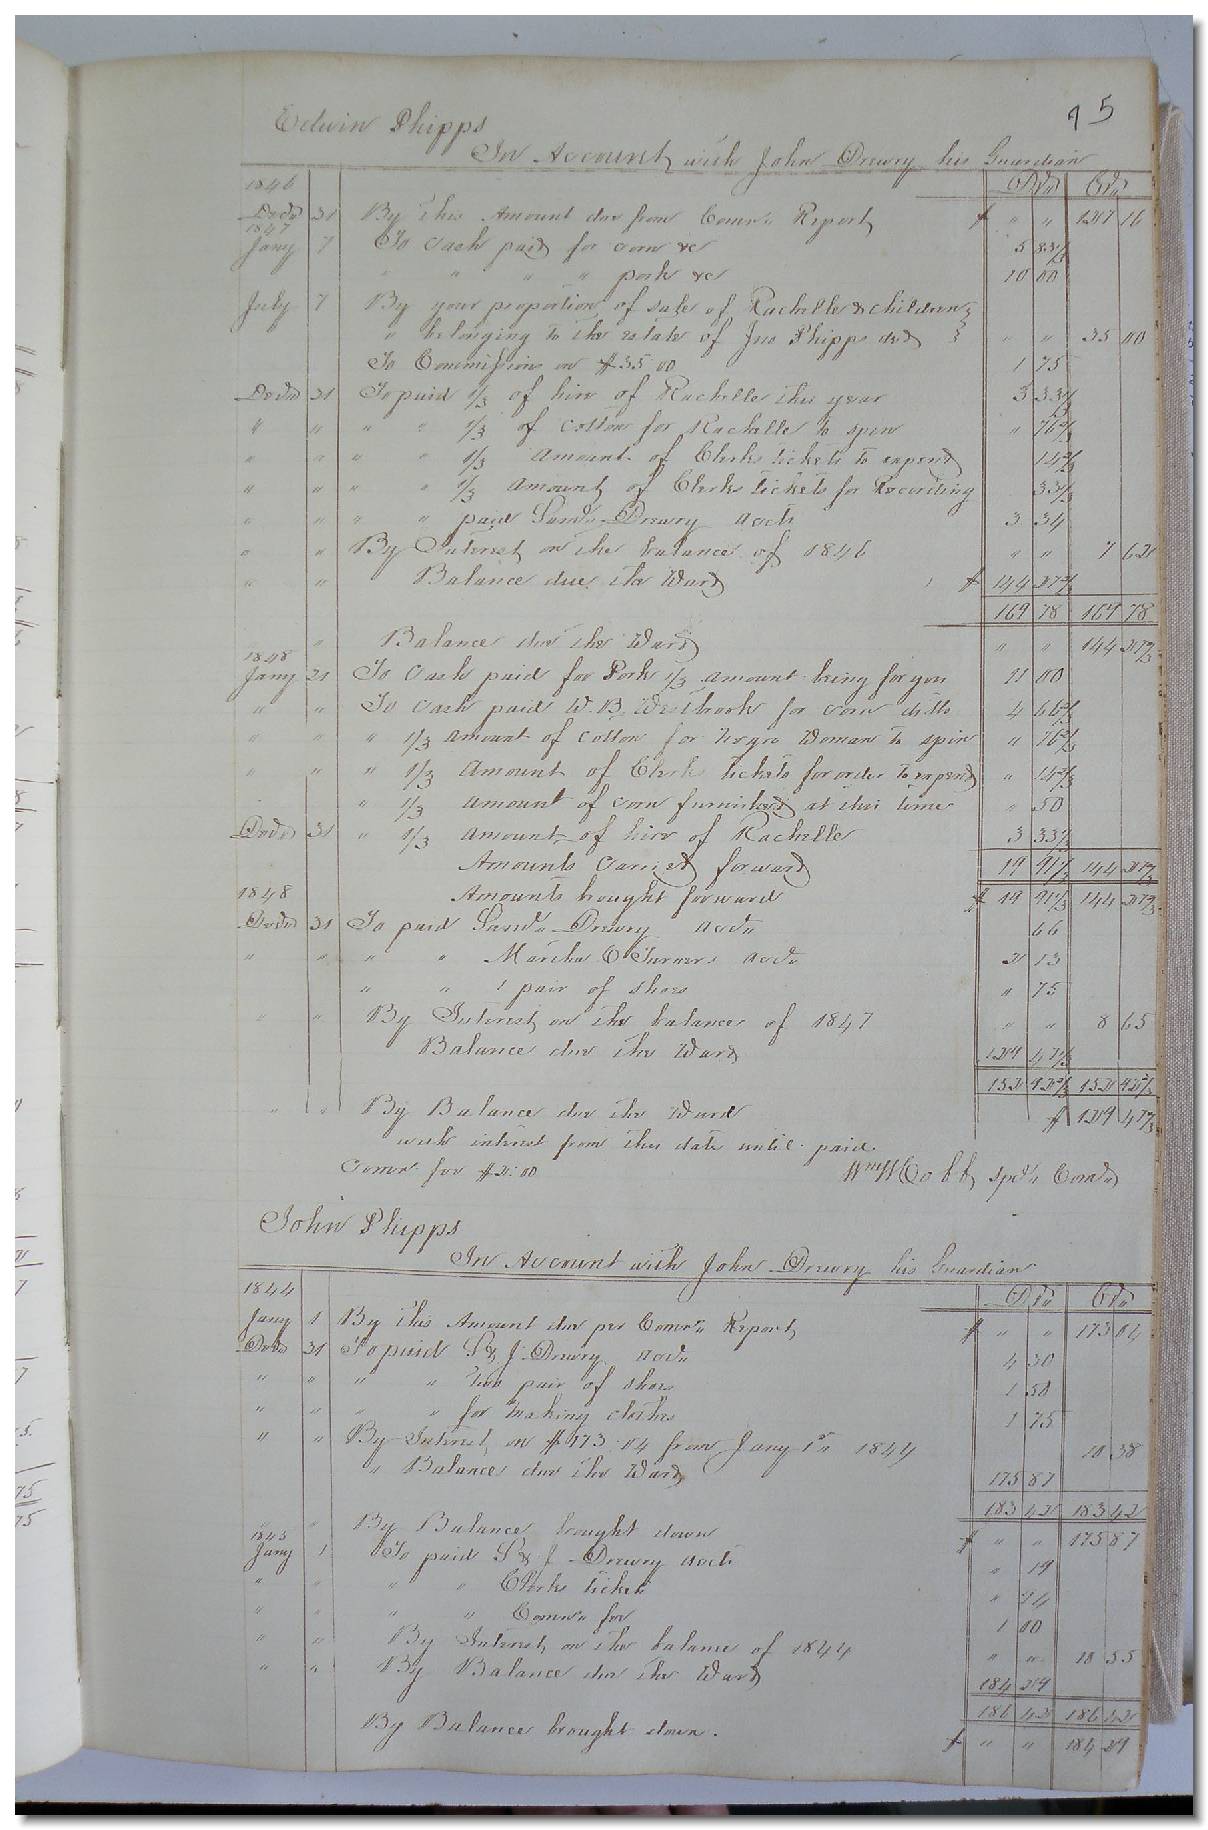 95
Edwin Phipps
In Account with John Drewry his Guardian
1846 Dr. Cr.
Decr 31 By this Amount due from Comrs Report $ " " 127 16
1847
Jany 7 To cash paid for corn &c 5 83 1/3
" " " " pork &c 10 00
July 7 By your proportion of sale of Rachelle & children
" belonging to the estate of Jno Phipps decd " " 35 00
To Commissions on $35.00 1 75
Decr 31 To paid 1/3 of hire of Rachelle this year 3 33 1/3
" " " " 1/3 of Cotton for Rachelle to spin " 76 2/3
" " " " 1/3 Amount of Clerks tickets to expend 14 2/3
" " " " 1/3 Amount of Clerks tickets for Recording 33 1/3
" " " " paid Saml Drewry acct 3 34
" " By Interest on the balance of 1846 " " 7 62
" " Balance due the Ward $ 144 27 2/3
169 78 169 78
" Balance due the Ward " " 144 27 2/3
1848
Jany 21 To cash paid for Pork 1/3 amount being for you 11 00
" " To cash paid W. B. Westbrook for corn ditto 4 66 2/3
" " " 1/3 Amount of cotton for negro woman to spin " 76 2/3
" " " 1/3 Amount of Clerks tickets for order to expend " 14 2/3
" 1/3 Amount of corn furnished at this time " 50
Decr 31 " 1/3 Amount of hire of Rachelle 3 33 1/3
Amounts carried forward 19 91 1/3 144 27 2/3
1848 Amounts brought forward $ 19 91 1/3 144 27 2/3
Decr 31 To paid Saml Drewry acct 66
" " " " Martha C Turners acct 2 13
" " 1 pair of shoes " 75
" " By Interest on the balance of 1847 " " 8 65
Balance due the Ward 129 47 1/3
152 92 2/3 152 92 2/3
" " By Balance due the Ward $ 129 47 1/3
with interest from this date until paid
Comr fee $2.00 Wm H Cobb spcl Comr
John Phipps
In Account with John Drewry his Guardian
1844 Dr. Cr.
Jany 1 By this Amount due per Comrs Report $ " " 173 04
Decr 31 To paid S & J Drewry acct 4 30
" " " " two pair of shoes 1 50
" " " " for making clothes 1 75
" " By Interest on $173.04 from Jany 1st 1844 10 38
" Balance due the Ward 175 87
183 42 183 42
" " By Balance brought down $ " " 175 87
1845
Jany 1 To paid S & J Drewry acct " 19
" " " " Clerks tickets " 94
" " " " Comrs fee 1 00
" " By Interest on the balance of 1844 " " 10 55
" " By Balance due the Ward 184 29
186 42 186 42
By Balance brought down. $ " " 184 29